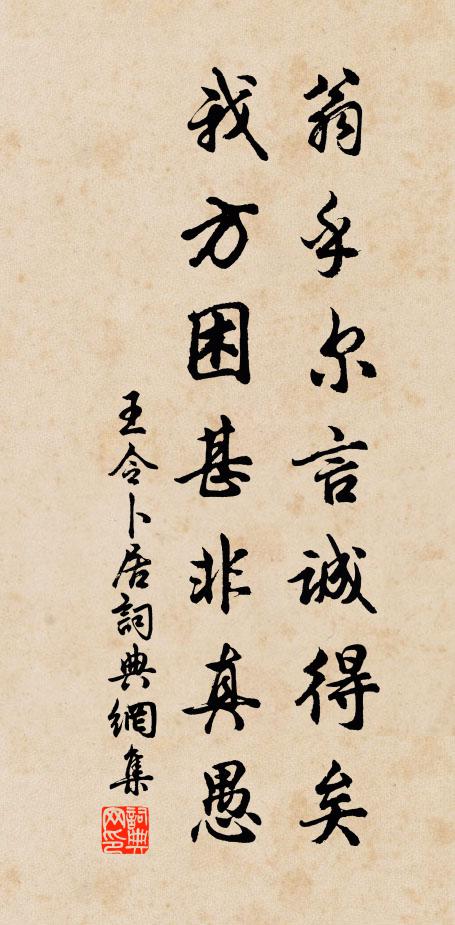 翁乎尔言誠得矣
我方困甚非真愚
王令卜居詞典網集
詞典
网印